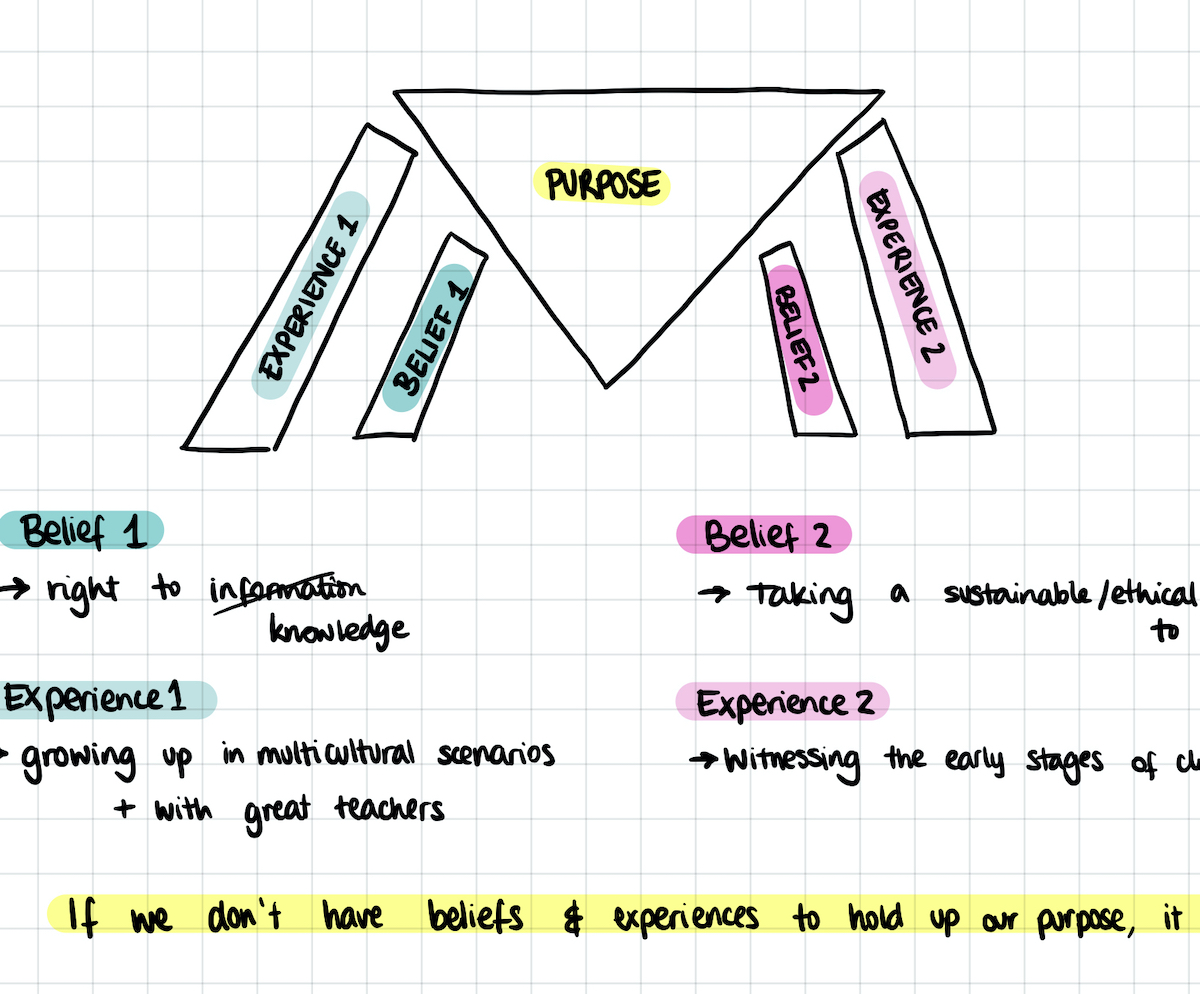 PURPOSE
EXPERIENCE 1
BELIEF 1
BELIEF 2
EXPERIENCE 2
Belief 1
→ right to information
knowledge
Experience 1
growing up in multicultural scenarios
+ with great teachers
Belief 2
→ Taking a sustainable/ethical
to
Experience 2
→ Witnessing the early stages of
If we don't have beliefs & experiences to hold up our purpose, it